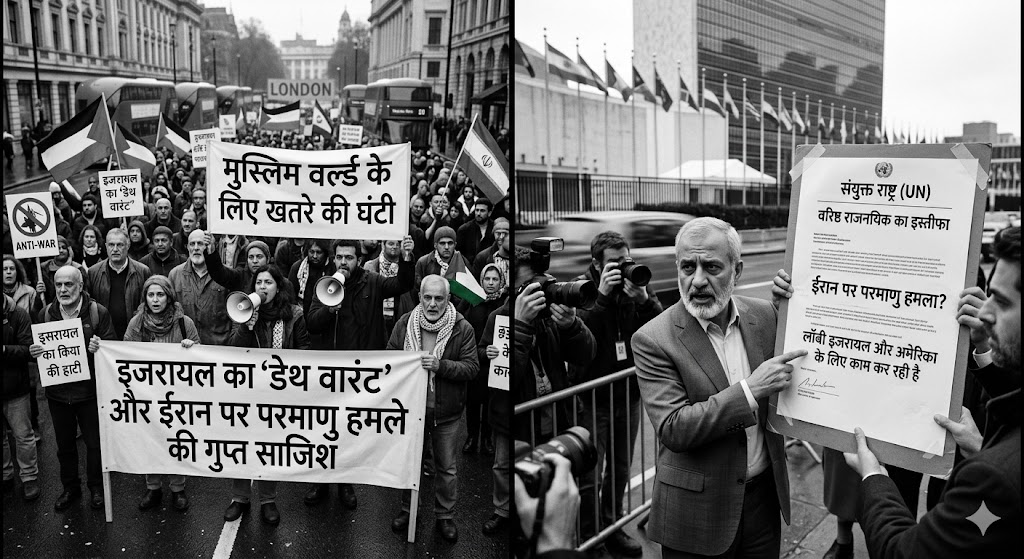 LONDON
मुस्लिम वर्ल्ड के
लिए खतरे की घंटी
इजरायल
का 'डेथ
वारंट'
ANTI-WAR
इसरायल
का किया
की हाटी
इजरायल का 'डेथ वारंट'
और ईरान पर परमाणु हमले
की गुप्त साजिश
संयुक्त राष्ट्र (UN)
वरिष्ठ राजनयिक का इस्तीफा
ईरान पर परमाणु हमला?
लॉबी इजरायल और अमेरिका
के लिए काम कर रही है